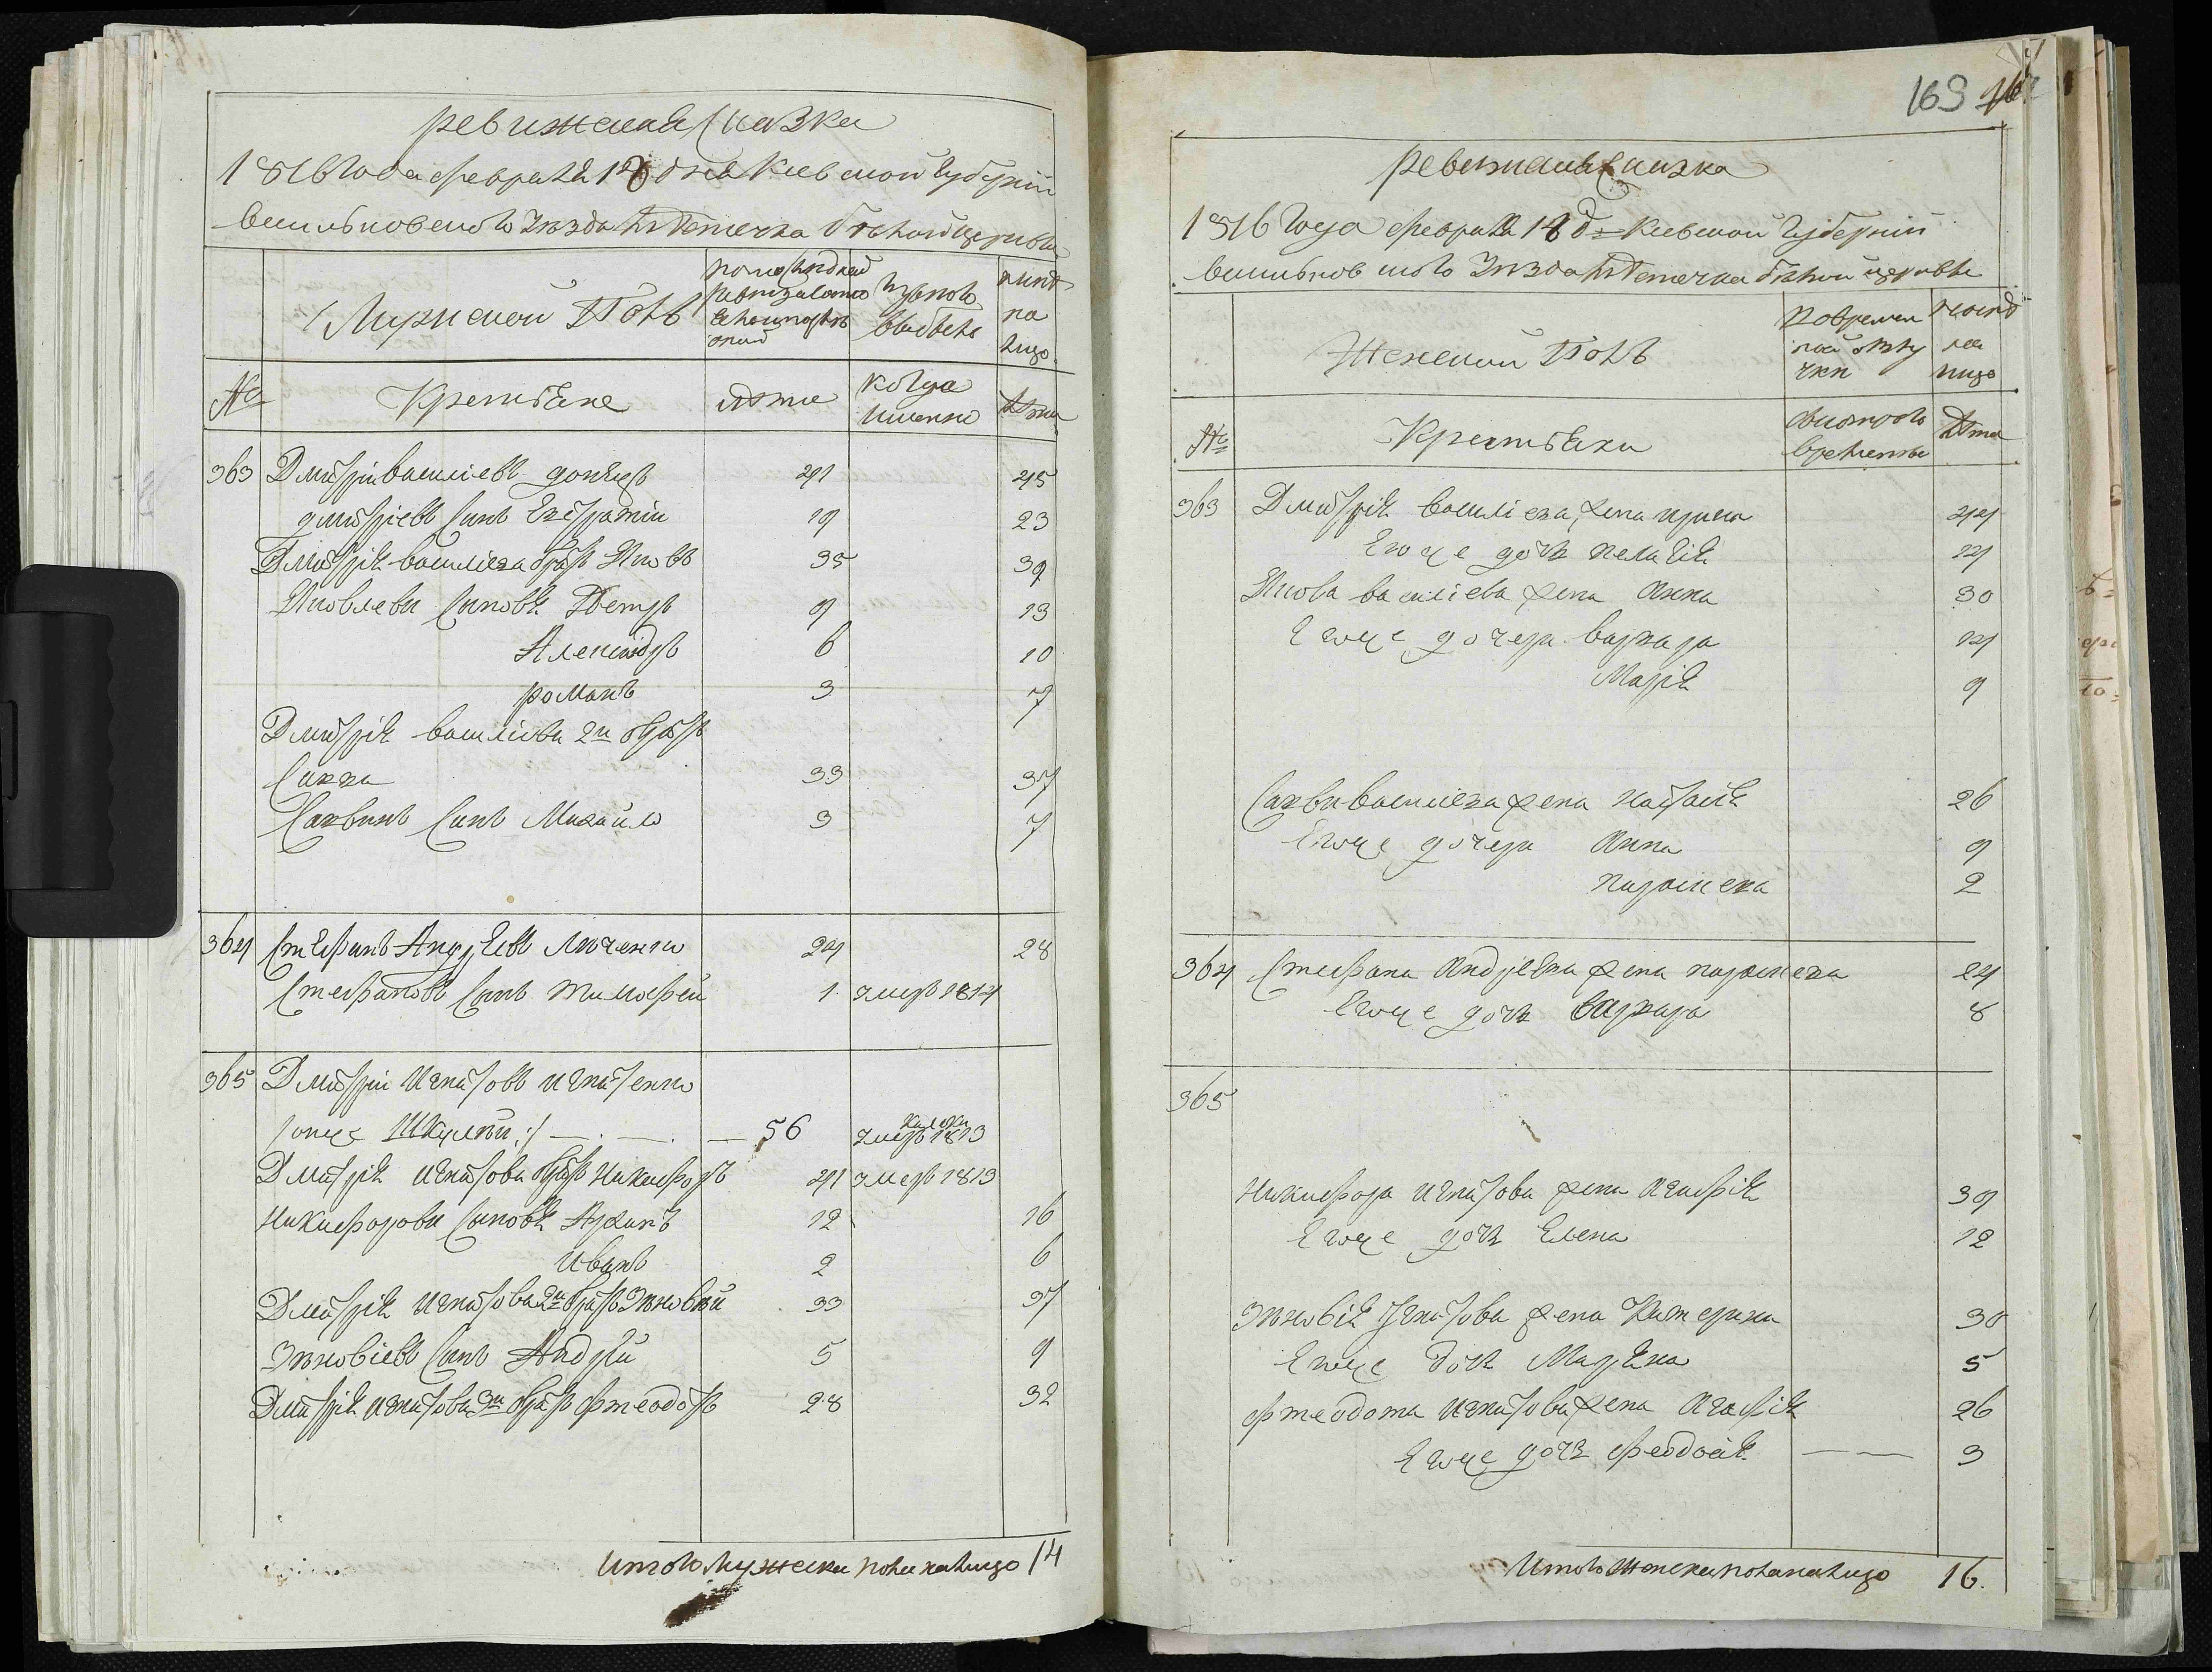 ревижская сказка
1816 года февраля 18 дня Киевской Губернии
Васильковского уезда Местечка Белой церкви
Мужской Полъ
по последней ревизии
изъ того выбыло
ныне на лицо
№
Крестьяне
лета
когда именно
лета
363 Дмитрій Василіевъ донецъ 41 45
Дмитріевъ Синъ Евстратій 19 23
Дмитрія Василіева братъ Яковъ 35 39
Яковлеви Синовя Петръ 9 13
Александръ 6 10
романъ 3 7
Дмитрія Василіева 2й братъ
Савва 33 37
Саввинъ Синъ Михайло 3 7
364 Стефанъ Андреевъ 24 28
Стефановъ Синъ Тимофей 1 умеръ 1814
365 Дмитрій Игнатовъ Игнатенко
онже 56 умеръ 1813
Дмитрія Игнатова братъ Никифоръ 41 умеръ 1813
Никифорови Синовя 12 16
Иванъ 2 6
Дмитрія Игнатова 2й братъ Зѣновѣй 33 37
Зѣновіевъ Синъ Андрей 5 9
Дмитрія Игнатова 3й братъ Фтеодотъ 28 32
Итого мужеска пола налицо 14
169
ревижская Сказка
1816 года февраля 18 д Киевской Губерніи
Васильковского уезда Местечка белой церкви
Женской Полъ
во временной отлучки
ныне на лицо
№
Крестьяки
съ которого времени
лета
363 Дмитрія Василіева жена 44
Егоже дочь пелагія 14
Якова василіева жена Анна 30
Егоже дочери варвара 14
Марія 9
Савви Василіева жена Настасія 26
Егоже дочери Анна 9
параскева 2
364 Стефана Андреева жена параскева 24
Егоже дочь варвара 8
365
Никифора Игнатова жена Агафія 39
Егоже дочь Елена 12
Зѣновія Игнатова жена Катерина 30
Егоже дочь Маряна 5
Фтеодота Игнатова жена Агафія 26
Егоже дочь Феодосія 3
Итого женска пола налицо 16.